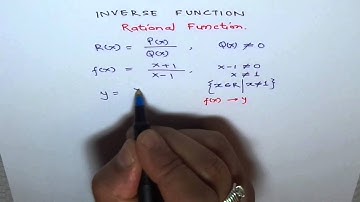 INVERSE FUNCTION
Rational Function.
R(x) = P(x)/Q(x) , Q(x) ≠ 0
f(x) = x+1/x-1 , x-1 ≠ 0
x ≠ 1
{x∈R | x≠1}
y =
f(x) → y